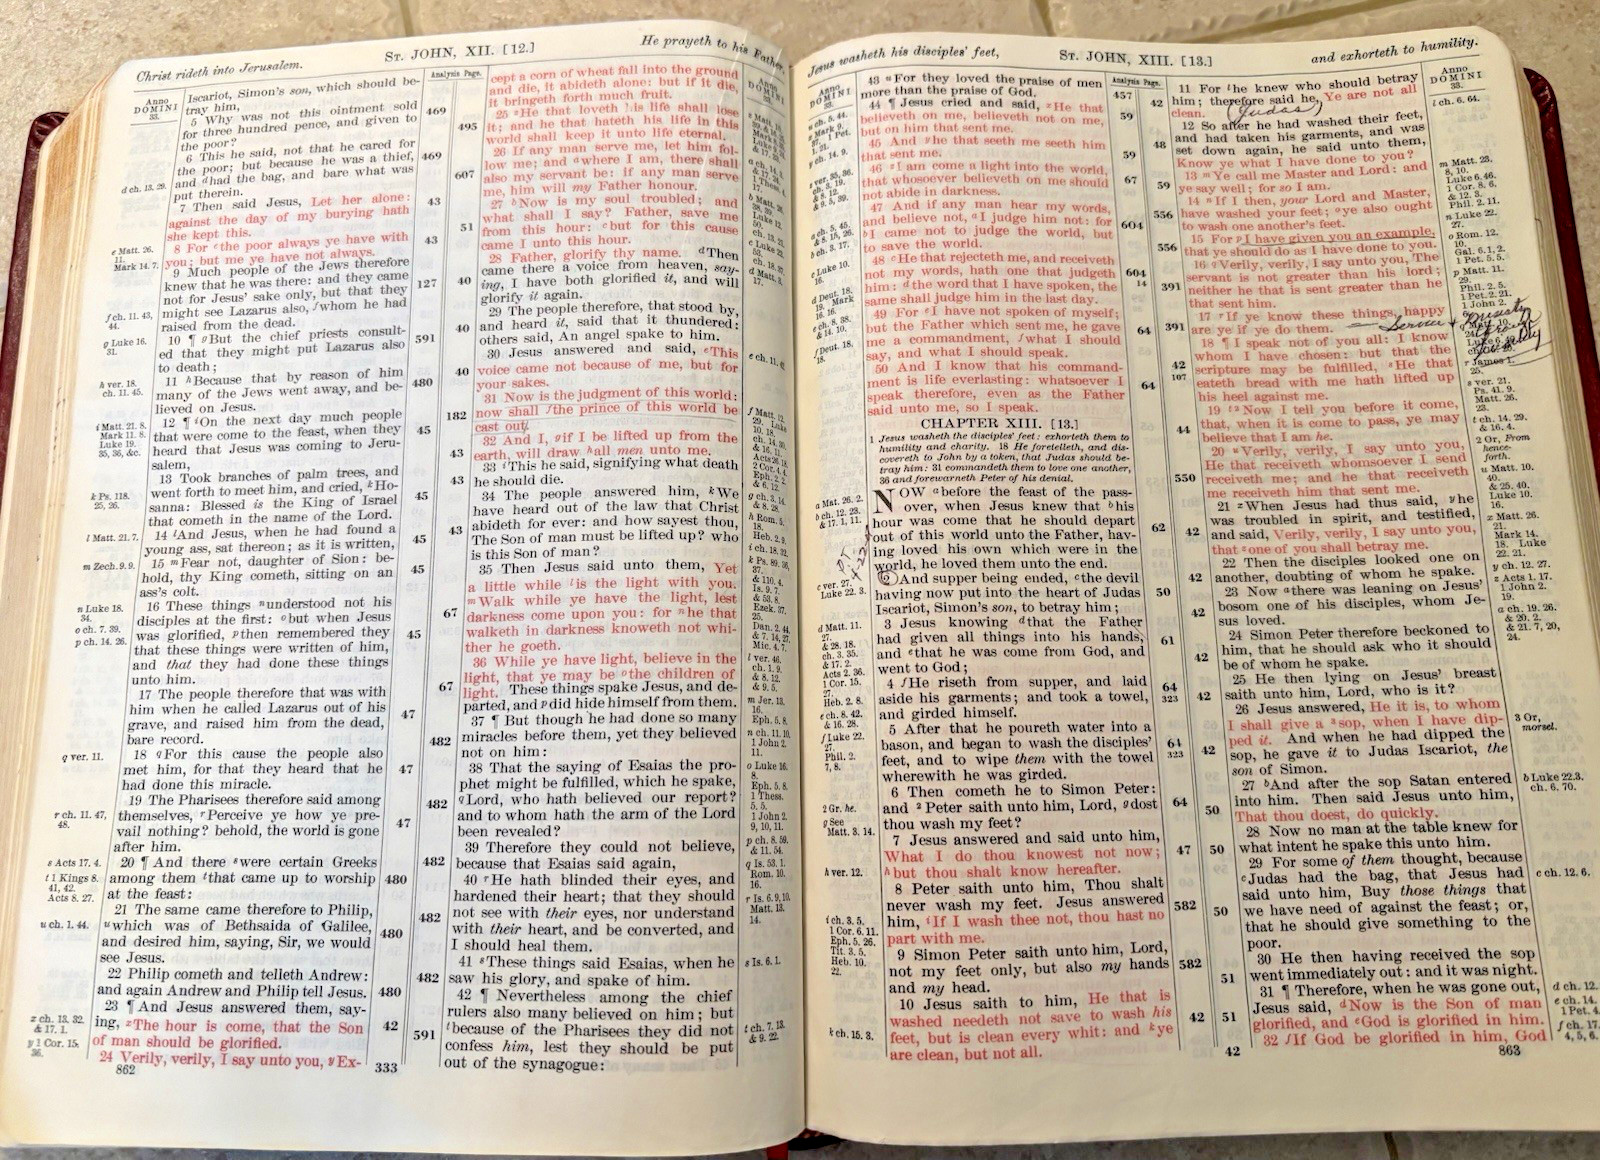 Christ rideth into Jerusalem.
ST. JOHN, XII. [12.]
He prayeth to his Father.
Anno
DOMINI
33.
d ch. 13. 29.
e Matt. 26.
11.
Mark 14. 7.
f ch. 11. 43,
44.
g Luke 16.
31.
h ver. 18.
ch. 11. 45.
i Matt. 21. 8.
Mark 11. 8.
Luke 19.
35, 36, &c.
k Ps. 118.
25, 26.
l Matt. 21. 7.
m Zech. 9. 9.
n Luke 18.
34.
o ch. 7. 39.
p ch. 14. 26.
q ver. 11.
r ch. 11. 47,
48.
s Acts 17. 4.
t 1 Kings 8.
41, 42.
Acts 8. 27.
u ch. 1. 44.
x ch. 13. 32.
& 17. 1.
y 1 Cor. 15.
36.
Iscariot, Simon's son, which should be-
tray him,
5 Why was not this ointment sold
for three hundred pence, and given to
the poor?
6 This he said, not that he cared for
the poor; but because he was a thief,
and d had the bag, and bare what was
put therein.
7 Then said Jesus, Let her alone:
against the day of my burying hath
she kept this.
8 For e the poor always ye have with
you; but me ye have not always.
9 Much people of the Jews therefore
knew that he was there: and they came
not for Jesus' sake only, but that they
might see Lazarus also, f whom he had
raised from the dead.
10 ¶ g But the chief priests consult-
ed that they might put Lazarus also
to death;
11 h Because that by reason of him
many of the Jews went away, and be-
lieved on Jesus.
12 ¶ i On the next day much people
that were come to the feast, when they
heard that Jesus was coming to Jeru-
salem,
13 Took branches of palm trees, and
went forth to meet him, and cried, k Ho-
sanna: Blessed is the King of Israel
that cometh in the name of the Lord.
14 l And Jesus, when he had found a
young ass, sat thereon; as it is written,
15 m Fear not, daughter of Sion: be-
hold, thy King cometh, sitting on an
ass's colt.
16 These things n understood not his
disciples at the first: o but when Jesus
was glorified, p then remembered they
that these things were written of him,
and that they had done these things
unto him.
17 The people therefore that was with
him when he called Lazarus out of his
grave, and raised him from the dead,
bare record.
18 q For this cause the people also
met him, for that they heard that he
had done this miracle.
19 The Pharisees therefore said among
themselves, r Perceive ye how ye pre-
vail nothing? behold, the world is gone
after him.
20 ¶ And there s were certain Greeks
among them t that came up to worship
at the feast:
21 The same came therefore to Philip,
u which was of Bethsaida of Galilee,
and desired him, saying, Sir, we would
see Jesus.
22 Philip cometh and telleth Andrew:
and again Andrew and Philip tell Jesus.
23 ¶ And Jesus answered them, say-
ing, x The hour is come, that the Son
of man should be glorified.
24 Verily, verily, I say unto you, y Ex-
862
Analysis Page.
469
495
469
607
43
51
43
127
40
40
591
40
480
182
45
43
43
45
43
45
45
67
45
67
47
482
47
482
47
482
480
482
480
482
480
42
591
333
cept a corn of wheat fall into the ground
and die, it abideth alone: but if it die,
it bringeth forth much fruit.
25 z He that loveth his life shall lose
it; and he that hateth his life in this
world shall keep it unto life eternal.
26 If any man serve me, let him fol-
low me; and a where I am, there shall
also my servant be: if any man serve
me, him will my Father honour.
27 b Now is my soul troubled; and
what shall I say? Father, save me
from this hour: c but for this cause
came I unto this hour.
28 Father, glorify thy name. d Then
came there a voice from heaven, say-
ing, I have both glorified it, and will
glorify it again.
29 The people therefore, that stood by,
and heard it, said that it thundered:
others said, An angel spake to him.
30 Jesus answered and said, e This
voice came not because of me, but for
your sakes.
31 Now is the judgment of this world:
now shall f the prince of this world be
cast out.
32 And I, g if I be lifted up from the
earth, will draw h all men unto me.
33 i This he said, signifying what death
he should die.
34 The people answered him, k We
have heard out of the law that Christ
abideth for ever: and how sayest thou,
The Son of man must be lifted up? who
is this Son of man?
35 Then Jesus said unto them, Yet
a little while l is the light with you.
m Walk while ye have the light, lest
darkness come upon you: for n he that
walketh in darkness knoweth not whi-
ther he goeth.
36 While ye have light, believe in the
light, that ye may be o the children of
light. These things spake Jesus, and de-
parted, and p did hide himself from them.
37 ¶ But though he had done so many
miracles before them, yet they believed
not on him:
38 That the saying of Esaias the pro-
phet might be fulfilled, which he spake,
q Lord, who hath believed our report?
and to whom hath the arm of the Lord
been revealed?
39 Therefore they could not believe,
because that Esaias said again,
40 r He hath blinded their eyes, and
hardened their heart; that they should
not see with their eyes, nor understand
with their heart, and be converted, and
I should heal them.
41 s These things said Esaias, when he
saw his glory, and spake of him.
42 ¶ Nevertheless among the chief
rulers also many believed on him; but
t because of the Pharisees they did not
confess him, lest they should be put
out of the synagogue:
o Luke 16.
8.
Eph. 5. 8.
1 Thess.
5. 5.
1 John 2.
9, 10, 11.
p ch. 8. 59.
& 11. 54.
q Is. 53. 1.
Rom. 10.
16.
r Is. 6. 9, 10.
Matt. 13.
14.
s Is. 6. 1.
t ch. 7. 13.
& 9. 22.
Jesus washeth his disciples' feet,
ST. JOHN, XIII. [13.]
and exhorteth to humility.
Anno
DOMINI
33.
u ch. 5. 44.
y ch. 14. 9.
e Luke 10.
16.
a Mat. 26. 2.
b ch. 12. 23.
& 17. 1, 11.
c ver. 27.
Luke 22. 3.
d Matt. 11.
27.
& 28. 18.
ch. 3. 35.
& 17. 2.
Acts 2. 36.
1 Cor. 15.
27.
Heb. 2. 8.
e ch. 8. 42.
& 16. 28.
f Luke 22.
27.
Phil. 2.
7, 8.
2 Gr. he.
g See
Matt. 3. 14.
h ver. 12.
i ch. 3. 5.
1 Cor. 6. 11.
Eph. 5. 26.
Tit. 3. 5.
Heb. 10.
22.
k ch. 15. 3.
43 u For they loved the praise of men
more than the praise of God.
44 ¶ Jesus cried and said, x He that
believeth on me, believeth not on me,
but on him that sent me.
45 And y he that seeth me seeth him
that sent me.
46 z I am come a light into the world,
that whosoever believeth on me should
not abide in darkness.
47 And if any man hear my words,
and believe not, a I judge him not: for
b I came not to judge the world, but
to save the world.
48 c He that rejecteth me, and receiveth
not my words, hath one that judgeth
him: d the word that I have spoken, the
same shall judge him in the last day.
49 For e I have not spoken of myself;
but the Father which sent me, he gave
me a commandment, f what I should
say, and what I should speak.
50 And I know that his command-
ment is life everlasting: whatsoever I
speak therefore, even as the Father
said unto me, so I speak.
CHAPTER XIII. [13.]
1 Jesus washeth the disciples' feet: exhorteth them to
humility and charity. 18 He foretelleth, and dis-
covereth to John by a token, that Judas should be-
tray him: 31 commandeth them to love one another,
36 and forewarneth Peter of his denial.
NOW a before the feast of the pass-
over, when Jesus knew that b his
hour was come that he should depart
out of this world unto the Father, hav-
ing loved his own which were in the
world, he loved them unto the end.
2 And supper being ended, c the devil
having now put into the heart of Judas
Iscariot, Simon's son, to betray him;
3 Jesus knowing d that the Father
had given all things into his hands,
and e that he was come from God, and
went to God;
4 f He riseth from supper, and laid
aside his garments; and took a towel,
and girded himself.
5 After that he poureth water into a
bason, and began to wash the disciples'
feet, and to wipe them with the towel
wherewith he was girded.
6 Then cometh he to Simon Peter:
and 2 Peter saith unto him, Lord, g dost
thou wash my feet?
7 Jesus answered and said unto him,
What I do thou knowest not now;
h but thou shalt know hereafter.
8 Peter saith unto him, Thou shalt
never wash my feet. Jesus answered
him, i If I wash thee not, thou hast no
part with me.
9 Simon Peter saith unto him, Lord,
not my feet only, but also my hands
and my head.
10 Jesus saith to him, He that is
washed needeth not save to wash his
feet, but is clean every whit: and k ye
are clean, but not all.
Analysis Page.
457
42
59
48
59
67
59
604
556
556
604
14
391
64
391
42
107
64
44
550
62
42
42
50
42
61
42
64
323
42
64
323
42
64
50
47
50
582
50
582
51
42
51
42
11 For l he knew who should betray
him; therefore said he, Ye are not all
clean.
Judas
12 So after he had washed their feet,
and had taken his garments, and was
set down again, he said unto them,
Know ye what I have done to you?
13 m Ye call me Master and Lord: and
ye say well; for so I am.
14 n If I then, your Lord and Master,
have washed your feet; o ye also ought
to wash one another's feet.
15 For p I have given you an example,
that ye should do as I have done to you.
16 q Verily, verily, I say unto you, The
servant is not greater than his lord;
neither he that is sent greater than he
that sent him.
17 r If ye know these things, happy
are ye if ye do them.
18 ¶ I speak not of you all: I know
whom I have chosen: but that the
scripture may be fulfilled, s He that
eateth bread with me hath lifted up
his heel against me.
19 t 2 Now I tell you before it come,
that, when it is come to pass, ye may
believe that I am he.
20 u Verily, verily, I say unto you,
He that receiveth whomsoever I send
receiveth me; and he that receiveth
me receiveth him that sent me.
21 x When Jesus had thus said, y he
was troubled in spirit, and testified,
and said, Verily, verily, I say unto you,
that z one of you shall betray me.
22 Then the disciples looked one on
another, doubting of whom he spake.
23 Now a there was leaning on Jesus'
bosom one of his disciples, whom Je-
sus loved.
24 Simon Peter therefore beckoned to
him, that he should ask who it should
be of whom he spake.
25 He then lying on Jesus' breast
saith unto him, Lord, who is it?
26 Jesus answered, He it is, to whom
I shall give a 3 sop, when I have dip-
ped it. And when he had dipped the
sop, he gave it to Judas Iscariot, the
son of Simon.
27 b And after the sop Satan entered
into him. Then said Jesus unto him,
That thou doest, do quickly.
28 Now no man at the table knew for
what intent he spake this unto him.
29 For some of them thought, because
c Judas had the bag, that Jesus had
said unto him, Buy those things that
we have need of against the feast; or,
that he should give something to the
poor.
30 He then having received the sop
went immediately out: and it was night.
31 ¶ Therefore, when he was gone out,
Jesus said, d Now is the Son of man
glorified, and e God is glorified in him.
32 f If God be glorified in him, God
863
Anno
DOMINI
33.
l ch. 6. 64.
m Matt. 23.
8, 10.
Luke 6. 46.
1 Cor. 8. 6.
& 12. 3.
Phil. 2. 11.
n Luke 22.
27.
o Rom. 12.
10.
Gal. 6. 1, 2.
1 Pet. 5. 5.
p Matt. 11.
29.
Phil. 2. 5.
1 Pet. 2. 21.
1 John 2.
Service
s ver. 21.
Ps. 41. 9.
Matt. 26.
23.
t ch. 14. 29.
& 16. 4.
2 Or, From
hence-
forth.
u Matt. 10.
40.
& 25. 40.
Luke 10.
16.
x Matt. 26.
21.
Mark 14.
18. Luke
22. 21.
y ch. 12. 27.
z Acts 1. 17.
1 John 2.
19.
a ch. 19. 26.
& 20. 2.
& 21. 7, 20,
24.
3 Or,
morsel.
b Luke 22. 3.
ch. 6. 70.
c ch. 12. 6.
d ch. 12.
e ch. 14.
1 Pet. 4.
f ch. 17.
4, 5, 6.